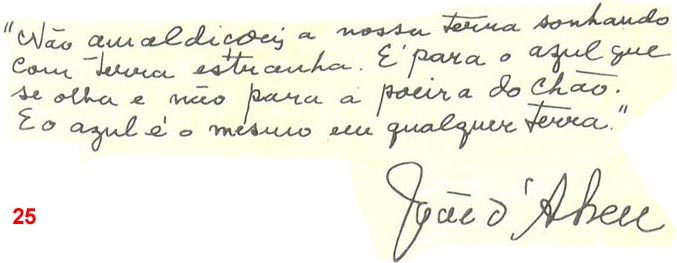 "Não amaldiçoeis a nossa terra sonhando
com terra estranha. É para o azul que
se olha e não para a poeira do chão.
E o azul é o mesmo em qualquer terra."
João d'Abreu
25